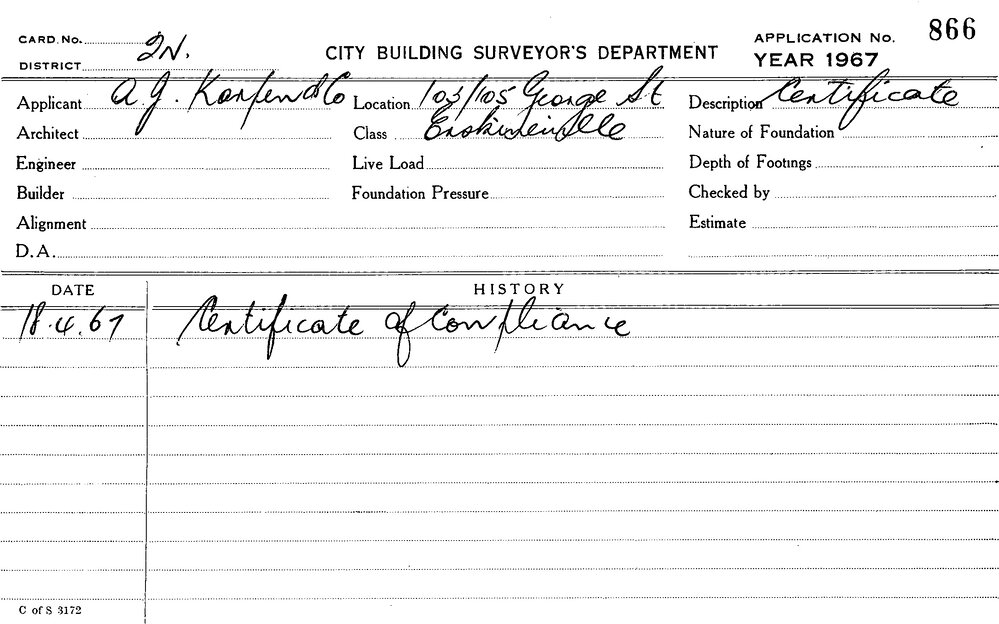 CARD. No. 2N. CITY BUILDING SURVEYOR'S DEPARTMENT APPLICATION No. 866
DISTRICT YEAR 1967
Applicant A.J. Karpen & Co Location 103/105 George St Description Certificate
Architect Class Erskineville Nature of Foundation
Engineer Live Load Depth of Footings
Builder Foundation Pressure Checked by
Alignment Estimate
D.A.
DATE HISTORY
18.4.67 Certificate of Compliance
C of S 3172